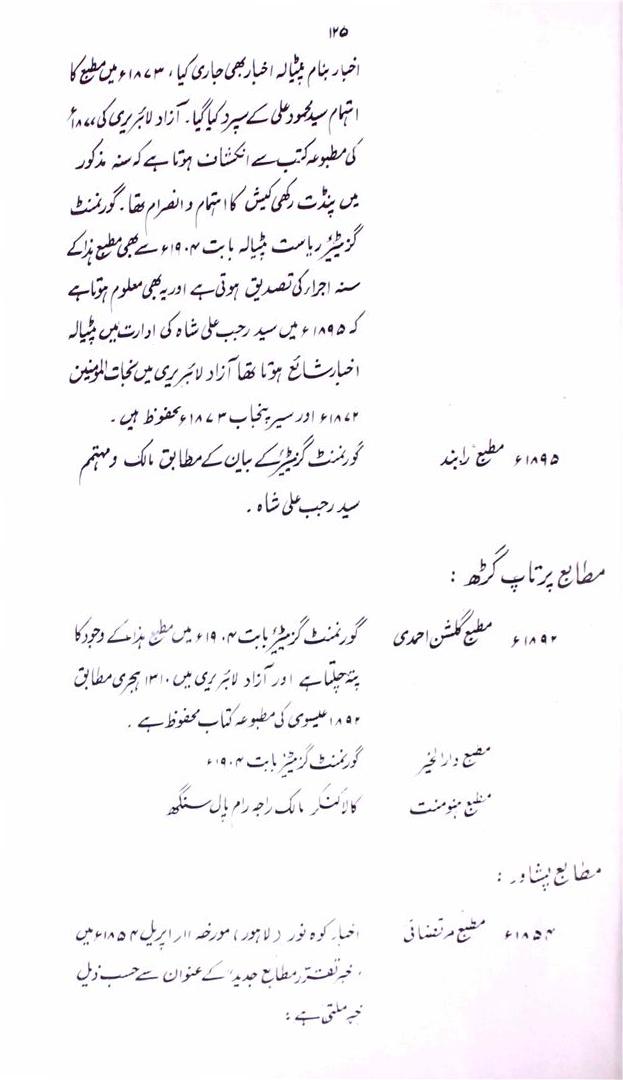 ۱۲۵
اخبار بنام پٹیالہ اخبار بھی جاری کیا، ۱۸۷۳ء میں مطبع کا
اہتمام سید محمود علی کے سپرد کیا گیا۔ آزاد لائبریری کی ۱۸۷۷ء
کی مطبوعہ کتب سے انکشاف ہوتا ہے کہ سنہ مذکور
میں پنڈت رکھی کیش کا اہتمام و انصرام تھا۔ گورنمنٹ
گزیٹیر ریاست پٹیالہ بابت ۱۹۰۴ء سے بھی مطبع ہذا کے
سنہ اجراء کی تصدیق ہوتی ہے اور یہ بھی معلوم ہوتا ہے
کہ ۱۸۹۵ء میں سید رجب علی شاہ کی ادارت میں پٹیالہ
اخبار شائع ہوتا تھا آزاد لائبریری میں نجات المومنین
۱۸۷۲ء اور سیر پنجاب ۱۸۷۳ء محفوظ ہیں۔
۱۸۹۵ء مطبع رابند گورنمنٹ گزیٹیر کے بیان کے مطابق مالک و مہتمم
سید رجب علی شاہ۔
مطابع پرتاپ گڑھ :
۱۸۹۲ء مطبع گلشن احمدی گورنمنٹ گزیٹیر بابت ۱۹۰۴ء میں مطبع ہذا کے وجود کا
پتہ چلتا ہے اور آزاد لائبریری میں ۱۳۱۰ ہجری مطابق
۱۸۹۲ عیسوی کی مطبوعہ کتاب محفوظ ہے۔
مطبع دارالخیر گورنمنٹ گزیٹیر بابت ۱۹۰۴ء
مطبع ہنومنت کالاکنکر مالک راجہ رام پال سنگھ
مطابع پشاور :
۱۸۵۴ء مطبع مرتضائی اخبار کوہ نور (لاہور) مورخہ ۱۱ر اپریل ۱۸۵۴ء میں
"خبر تقرر مطابع جدید" کے عنوان سے حسب ذیل
خبر ملتی ہے :